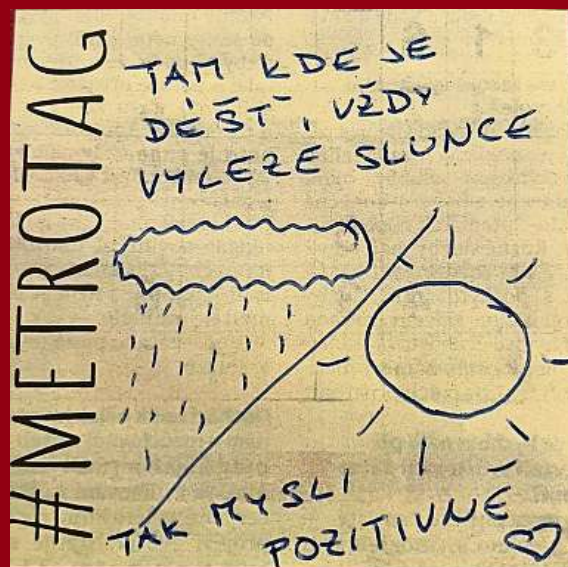 #METROTAG
TAM KDE JE
DÉŠŤ, VŽDY
VYLEZE SLUNCE
TAK MYSLI
POZITIVNĚ